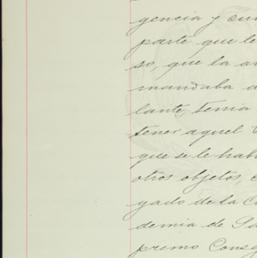 gencia y cum
parte que le
so, que la au
mandaba a
lante, tenia
tener aquel
que se le hab
otros objetos,
gado de la C
demia de Sa
premo Conse